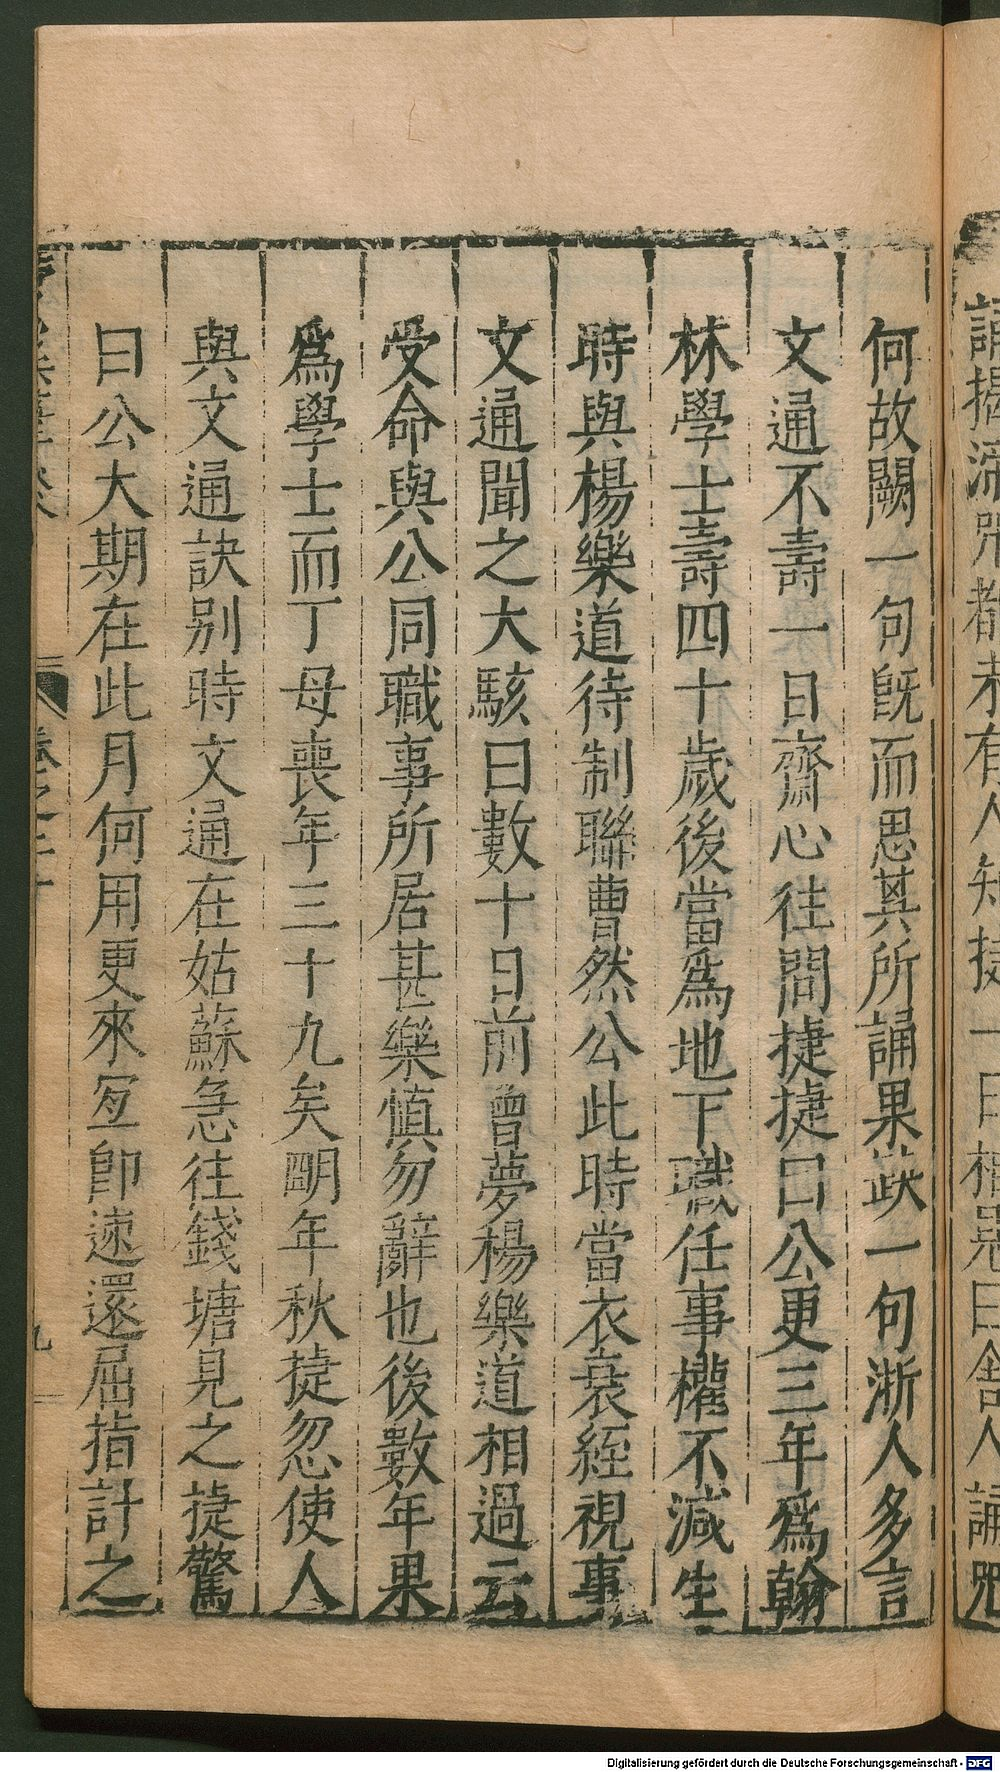 誦揭帝呪都未有人知捷一日相見曰舍人誦呪
何故闕一句旣而思其所誦果䓈一句浙人多言
文通不壽一日齋心往問捷捷曰公更三年爲翰
林學士壽四十歲後當爲地下職任事權不減生
時與楊樂道待制聯曹然公此時當衣衰絰視事
文通聞之大駭曰數十日前曾夢楊樂道相過云
受命與公同職事所居甚樂慎勿辭也後數年果
爲學士而丁母喪年三十九矣明年秋捷忽使人
與文通訣别時文通在姑蘇急往錢塘見之捷驚
曰公大期在此月何用更來宐卽速還屈指計之
卷之二十
九
Digitalisierung gefördert durch die Deutsche Forschungsgemeinschaft - DFG